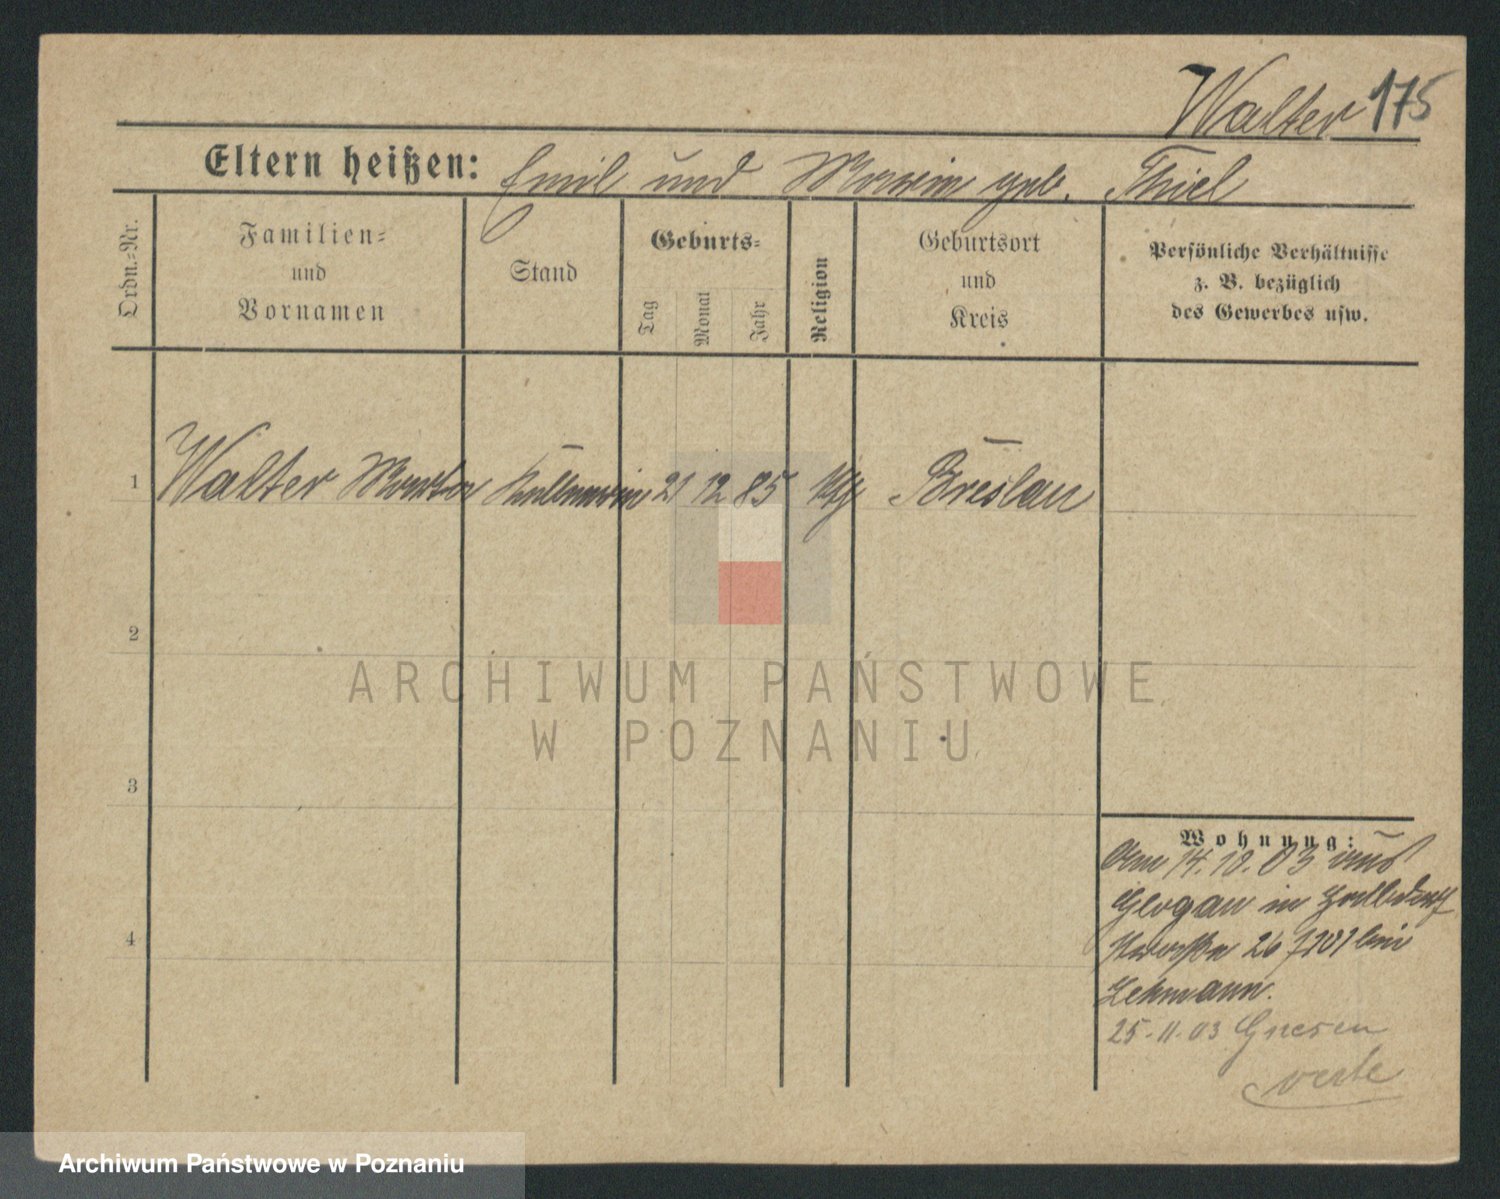 Walter 175
Eltern heißen: Emil und Maria geb. Thiel
Ordn.-Nr.
Familien-
und
Vornamen
Stand
Geburts-
Tag
Monat
Jahr
Religion
Geburtsort
und
Kreis
Persönliche Verhältnisse
z. B. bezüglich
des Gewerbes usw.
1 Walter Martha Kellnerin 21 12 85 Breslau
2
3
4
ARCHIWUM PAŃSTWOWE
W POZNANIU
Wohnung:
Am 14.10.03 aus
Glogau in
26 bei
Lehmann.
25.11.03 Gnesen
verte
Archiwum Państwowe w Poznaniu